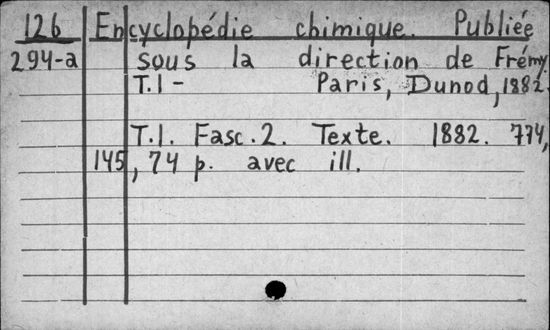 126 Encyclopédie chimique. Publiée
294-a sous la direction de Frémy
T.I - Paris, Dunod, 1882.
T.I. Fasc. 2. Texte. 1882. 774,
145, 74 p. avec ill.